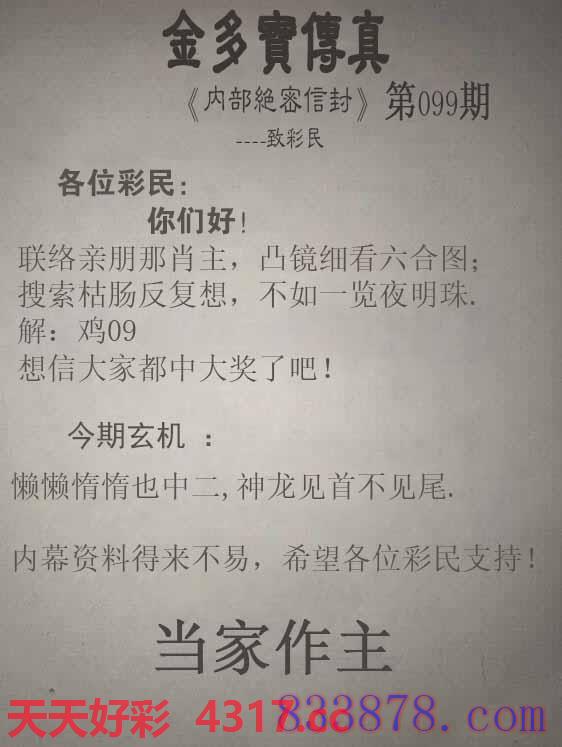 金多寶傳真
《内部絕密信封》第099期
----致彩民
各位彩民:
你们好!
联络亲朋那肖主，凸镜细看六合图;
搜索枯肠反复想，不如一览夜明珠.
解：鸡09
想信大家都中大奖了吧!
今期玄机 ：
懒懒惰惰也中二,神龙见首不见尾.
内幕资料得来不易，希望各位彩民支持!
当家作主
天天好彩 4317.cc
833878.com